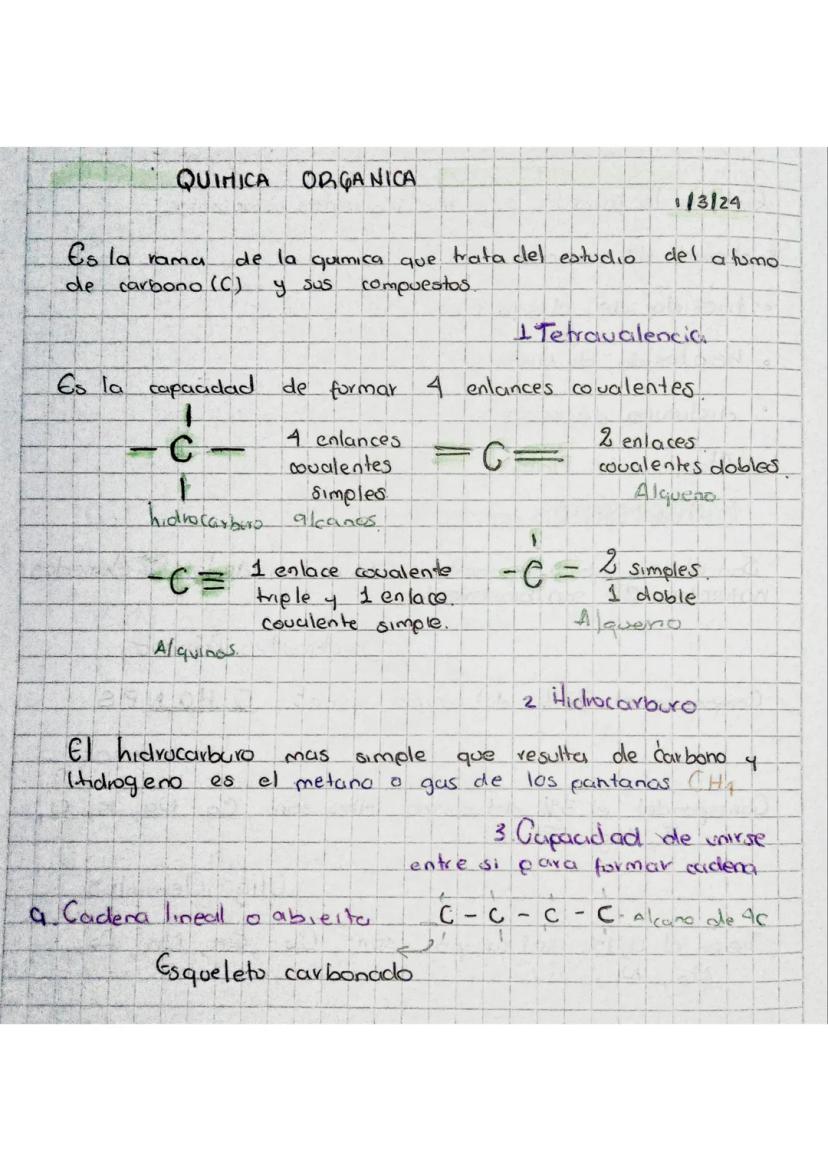 QUIMICA ORGANICA
1/3/24
Es la rama de la quimica que trata del estudio del atomo
de carbono (C) y sus compuestos.
1 Tetravalencia
Es la capacidad de formar 4 enlances covalentes.
- C -
4 enlances
covalentes
simples
hidrocarburo alcanos.
= C =
2 enlaces
covalentes dobles.
Alqueno
- C ≡
1 enlace covalente
triple y 1 enlace.
covalente simple.
Alquinos.
- C =
2 simples.
1 doble
Alqueno
2 Hidrocarburo
El hidrocarburo mas simple que resulta de Carbono y
Hidrogeno es el metano o gas de los pantanos CH4
3. Capacidad de unirse
entre si para formar cadena
a. Cadena lineal o abierta
C - C - C - C - Alcano de 4C
Esqueleto carbonado